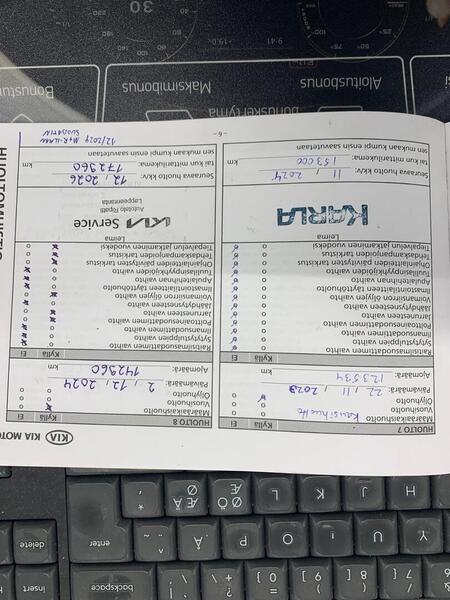 KIA MOTO
HUOLTO 7
Kyllä Ei
Määräaikaishuolto
Vuosihuolto
Kausihuolto
Öljyhuolto
Päivämäärä: 22, 11, 2023
Ajomäärä: 123534
Kyllä Ei
Raitisilmasuodattimen vaihto
Sytytystulppien vaihto
Ilmansuodattimen vaihto
Polttoainesuodattimen vaihto
Jarrunesteen vaihto
Jäähdytysnesteen vaihto
Voimansiirron öljyjen vaihto
Ilmastointilaitteen täyttöhuolto
Apulaitehihnan vaihto
Tuulilasinpyyhkijöiden vaihto
Ohjainlaitteiden päivitysten tarkistus
Tehdaskampanjoiden tarkistus
Tiepalvelun jatkaminen vuodeksi
Leima
KARLA
Seuraava huolto kk/v: 11, 2024
tai kun mittarilukema: 153000 km
sen mukaan kumpi ensin saavutetaan
- 6 -
HUOLTO 8
Kyllä Ei
Määräaikaishuolto
Vuosihuolto
Öljyhuolto
Päivämäärä: 2, 12, 2024
Ajomäärä: 142960 km
Kyllä Ei
Raitisilmasuodattimen vaihto
Sytytystulppien vaihto
Ilmansuodattimen vaihto
Polttoainesuodattimen vaihto
Jarrunesteen vaihto
Jäähdytysnesteen vaihto
Voimansiirron öljyjen vaihto
Ilmastointilaitteen täyttöhuolto
Apulaitehihnan vaihto
Tuulilasinpyyhkijöiden vaihto
Ohjainlaitteiden päivitysten tarkistus
Tehdaskampanjoiden tarkistus
Tiepalvelun jatkaminen vuodeksi
Leima
KIA Service
Autotalo Ripatti
Lappeenranta
Seuraava huolto kk/v: 12, 2026
tai kun mittarilukema: 172960 km
sen mukaan kumpi ensin saavutetaan
12/2024 M+R-ILMAN
SUODATIN
HUOLTOMUISTIO
Bonuskertymä
Aloitusbonus
Maksimibonus
Bonustur
30
9:41
backspace
insert
enter
delete
Y U I O P Å
H J K L Ö Ä